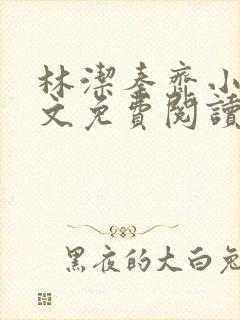 林潔秦齊小
文免費閱讀
黑夜的大白兔